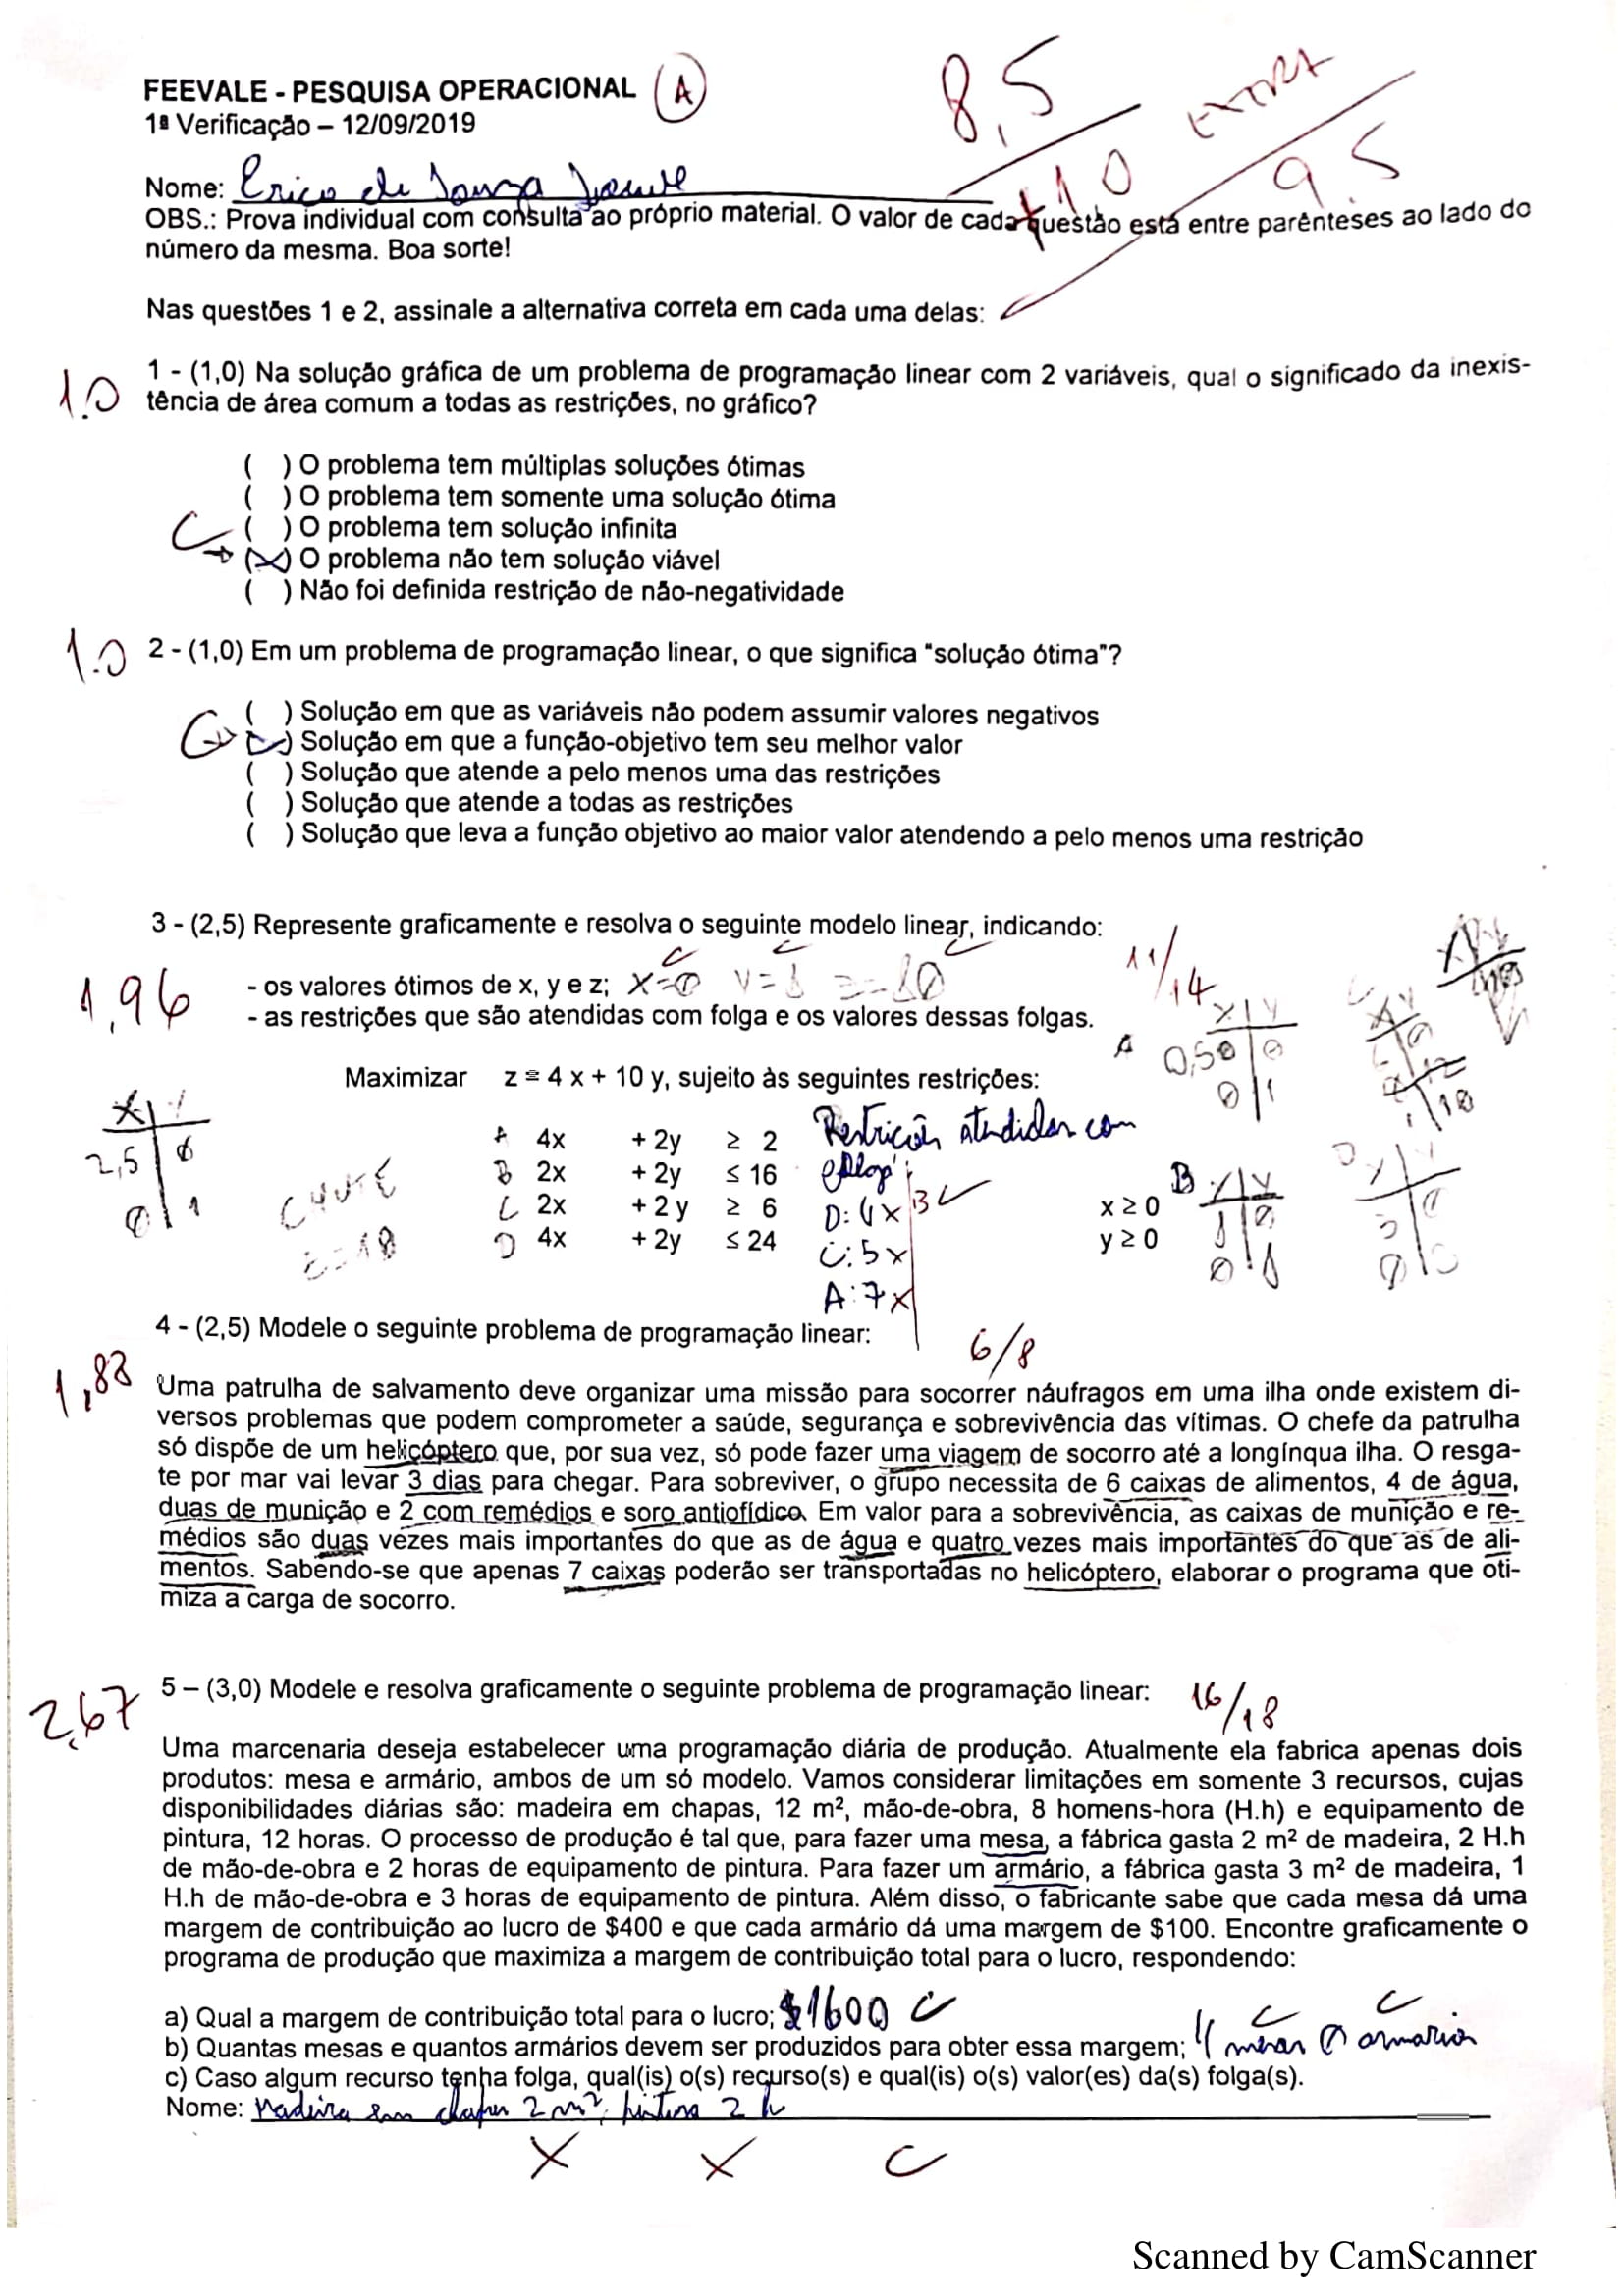 FEEVALE - PESQUISA OPERACIONAL A
1ª Verificação – 12/09/2019
8,5
EXTRA
+1,0
9.5
Nome: Erico de Souza
OBS.: Prova individual com consulta ao próprio material. O valor de cada questão está entre parênteses ao lado do
número da mesma. Boa sorte!
Nas questões 1 e 2, assinale a alternativa correta em cada uma delas:
1.0
1 - (1,0) Na solução gráfica de um problema de programação linear com 2 variáveis, qual o significado da inexis-
tência de área comum a todas as restrições, no gráfico?
( ) O problema tem múltiplas soluções ótimas
( ) O problema tem somente uma solução ótima
( ) O problema tem solução infinita
(X) O problema não tem solução viável
( ) Não foi definida restrição de não-negatividade
1.0
2 - (1,0) Em um problema de programação linear, o que significa "solução ótima"?
( ) Solução em que as variáveis não podem assumir valores negativos
(X) Solução em que a função-objetivo tem seu melhor valor
( ) Solução que atende a pelo menos uma das restrições
( ) Solução que atende a todas as restrições
( ) Solução que leva a função objetivo ao maior valor atendendo a pelo menos uma restrição
3 - (2,5) Represente graficamente e resolva o seguinte modelo linear, indicando:
1,96
11/14
- os valores ótimos de x, y e z; X=0 Y=8 Z=80
- as restrições que são atendidas com folga e os valores dessas folgas.
Maximizar z = 4 x + 10 y, sujeito às seguintes restrições:
A 4x + 2y ≥ 2
B 2x + 2y ≤ 16
C 2x + 2 y ≥ 6
D 4x + 2y ≤ 24
x ≥ 0
y ≥ 0
Restrições atendidas com
D: 4 X B
C: 5 X
A: 7 X
X Y
2,5 0
0 1
CHUTE
A X Y
0,50 0
0 1
B X Y
8 0
0 8
4 - (2,5) Modele o seguinte problema de programação linear:
6/8
1,88
Uma patrulha de salvamento deve organizar uma missão para socorrer náufragos em uma ilha onde existem di-
versos problemas que podem comprometer a saúde, segurança e sobrevivência das vítimas. O chefe da patrulha
só dispõe de um helicóptero que, por sua vez, só pode fazer uma viagem de socorro até a longínqua ilha. O resga-
te por mar vai levar 3 dias para chegar. Para sobreviver, o grupo necessita de 6 caixas de alimentos, 4 de água,
duas de munição e 2 com remédios e soro antiofídico. Em valor para a sobrevivência, as caixas de munição e re-
médios são duas vezes mais importantes do que as de água e quatro vezes mais importantes do que as de ali-
mentos. Sabendo-se que apenas 7 caixas poderão ser transportadas no helicóptero, elaborar o programa que oti-
miza a carga de socorro.
2,67
5 – (3,0) Modele e resolva graficamente o seguinte problema de programação linear:
16/18
Uma marcenaria deseja estabelecer uma programação diária de produção. Atualmente ela fabrica apenas dois
produtos: mesa e armário, ambos de um só modelo. Vamos considerar limitações em somente 3 recursos, cujas
disponibilidades diárias são: madeira em chapas, 12 m², mão-de-obra, 8 homens-hora (H.h) e equipamento de
pintura, 12 horas. O processo de produção é tal que, para fazer uma mesa, a fábrica gasta 2 m² de madeira, 2 H.h
de mão-de-obra e 2 horas de equipamento de pintura. Para fazer um armário, a fábrica gasta 3 m² de madeira, 1
H.h de mão-de-obra e 3 horas de equipamento de pintura. Além disso, o fabricante sabe que cada mesa dá uma
margem de contribuição ao lucro de $400 e que cada armário dá uma margem de $100. Encontre graficamente o
programa de produção que maximiza a margem de contribuição total para o lucro, respondendo:
a) Qual a margem de contribuição total para o lucro; $1600 C
b) Quantas mesas e quantos armários devem ser produzidos para obter essa margem; 4 mesas 0 armarios
c) Caso algum recurso tenha folga, qual(is) o(s) recurso(s) e qual(is) o(s) valor(es) da(s) folga(s).
Nome: Madeira em chapas 2 m², pintura 2 h
X X C
Scanned by CamScanner